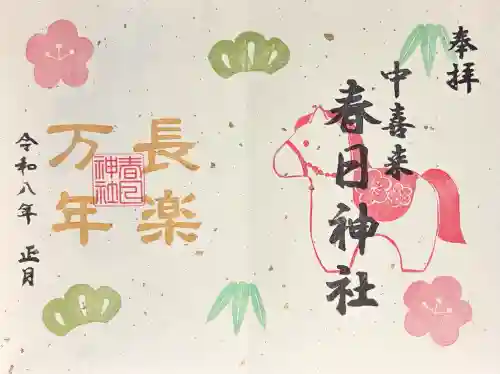 奉拝
中喜来
春日神社
長楽
万年
春日
神社
令和八年 正月